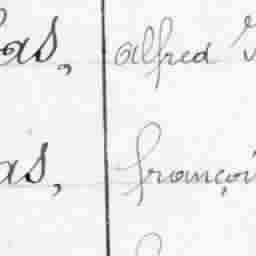 as, alfred
as, françoi